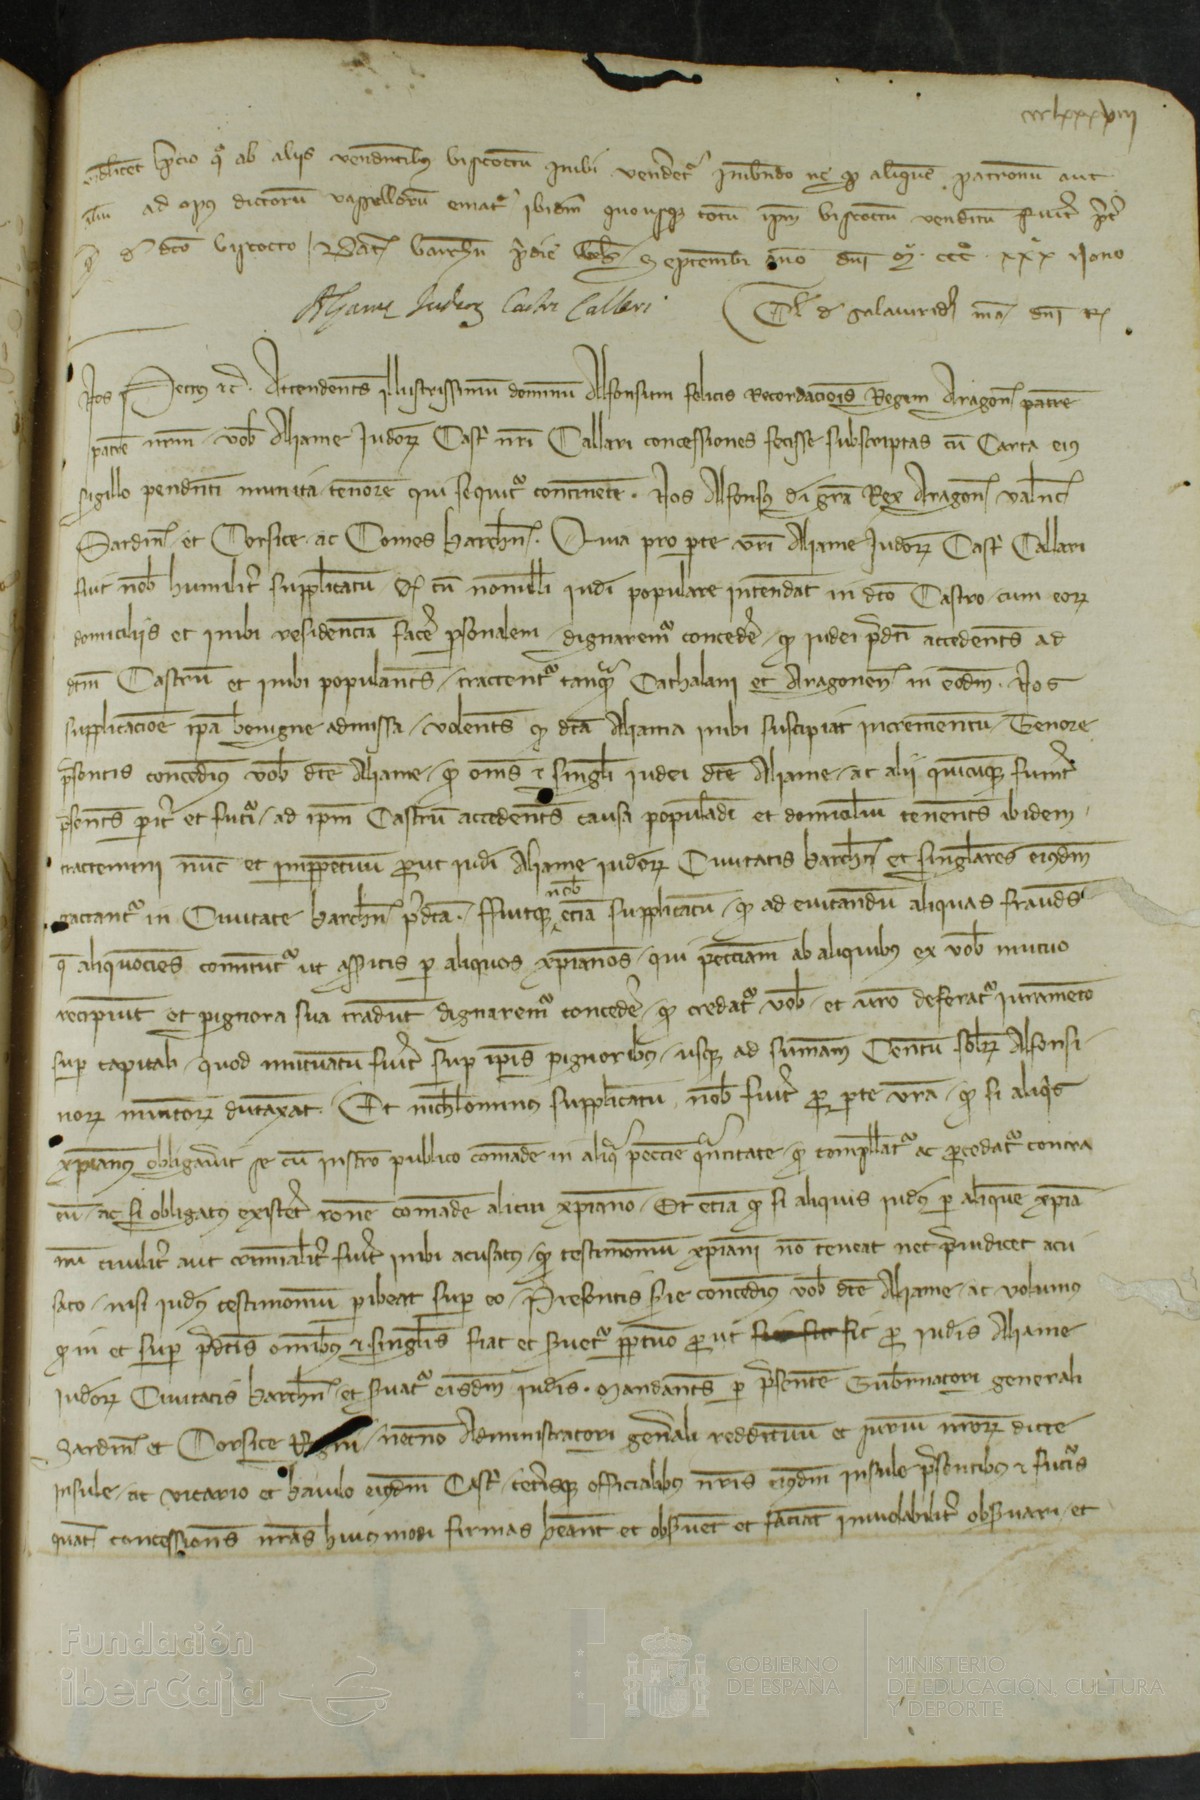 ccclxxxviii
videlicet precio qo ab aliis vendentibus biscoctum inibi vendetur inhibendo ne per aliquem patronum aut
alium ad opus dictorum vassellorum ematur ibidem quousque totum ipm biscoctum venditum fuerit
de dco biscocto Dat Barchn pridie kls Septembr anno dni Mo ccco xxx nono
Aljame Judeor Castri Callari
Nos Petrus etc. Attendentes illustrissimum dominum Alfonsum felicis recordacionis Regem Aragon patrem
patrem nrm vob Aljame Judeorum Castri nri Callari concessiones fecisse subscriptas cum Carta eius
sigillo pendenti munita tenorem qui sequitur continentem. Nos Alfonsus di gra Rex Aragon Valenc
Sardin et Corsice ac Comes Barchn. Quia pro parte vri Aljame Judeorum Castri Callari
fuit nob humiliter supplicatum qd cum nonnulli iudei populare intendant in dco Castro cum eorum
domiciliis et inibi residenciam facere personalem dignaremur concedere qd iudei predci accedentes ad
dcm Castrum et inibi populantes tractentur tanquam Cathalani et Aragonen in eodem. Nos
supplicacione ipa benigne admissa volentes qd dca Aljama inibi suscipiat incrementum Tenore
presentis concedimus vob dce Aljame qd omes et singuli iudei dce Aljame ac alii quicumque fuerint
presentes pariter et futuri ad ipm Castrum accedentes causa populandi et domicilium tenentes ibidem
tractemini nunc et imperpetuum prout iudei Aljame iudeorum Civitatis Barchn et singulares eiusdem
tractantur in Civitate Barchn predca. Fuitque nob eciam supplicatum qd ad evitandum aliquas fraudes
que aliquociens comittuntur ut asseritis per aliquos xpianos qui pecuniam ab aliquibus ex vob mutuo
recipiunt et pignora sua tradunt dignaremur concedere qd credatur vob et vro deferatur iuramento
super capitali quod mutuatum fuerit super ipis pignoribus usque ad sumam Centum solidorum Alfonsi
norum minutorum dumtaxat. Et nichilominus supplicatum nob fuerit pro parte vra qd si aliquis
xpianus obligaverit se cum instro publico comande in aliqua peccunie quantitate qd compellatur ac procedatur contra
eum ac si obligatus existeret racone comande alicui xpiano. Et eciam qd si aliquis iudeus per aliquem xpia
num civiliter aut criminaliter fuerit inibi acusatus qd testimonium xpiani non teneat nec preiudicet acu
sato nisi iudeus testimonium perhibeat super eo Presentis serie concedimus vob dce Aljame ac volumus
qd in et super predcis omnibus et singulis fiat et servetur perpetuo prout fit pro iudeis Aljame
Judeorum Civitatis Barchn et servatur eisdem iudeis. Mandantes per presentem Gubernatori generali
Sardin et Corsice Regni necnon Administratori generali reddituum et iurium nrorum dicte
insule ac vicario et baiulo eiusdem Castri ceterisque officialibus nris eiusdem insule presentibus et futuris
quat concessiones nras huiusmodi firmas habeant et observent et faciant inviolabiliter observari et
Fundación
iberCaja
GOBIERNO
DE ESPAÑA
MINISTERIO
DE EDUCACIÓN, CULTURA
Y DEPORTE